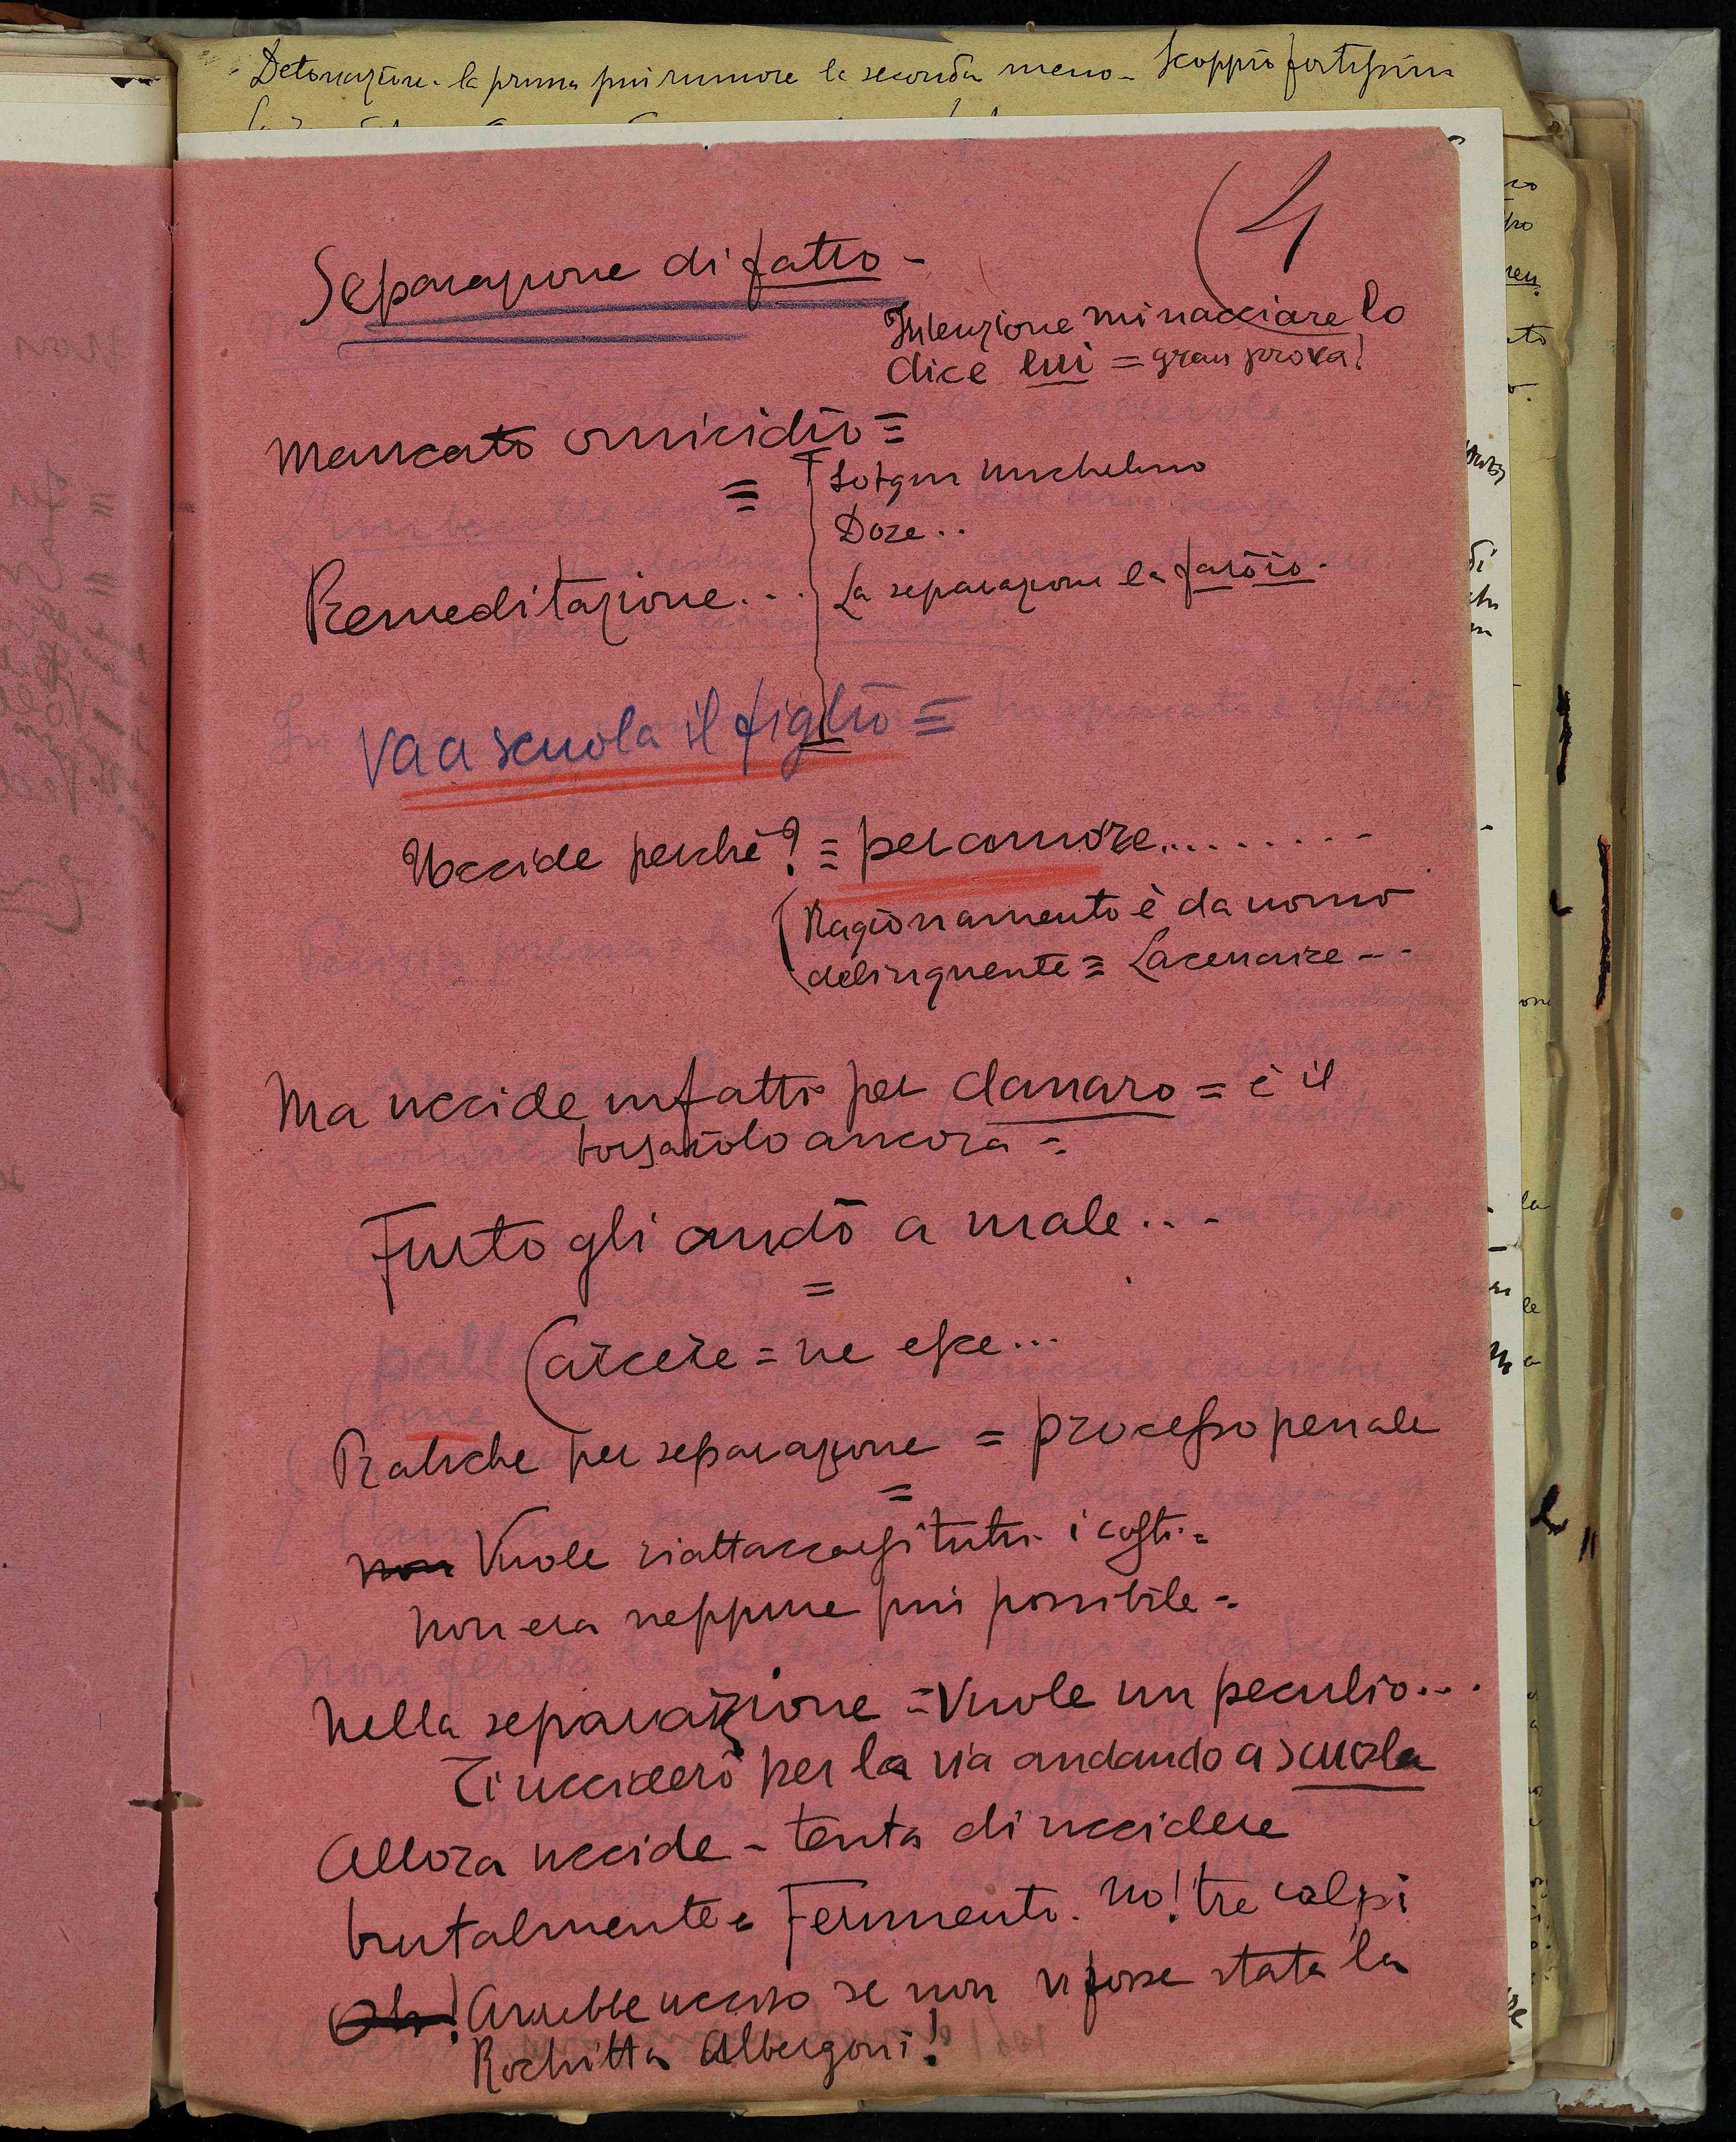 Detonazione. la prima più rumore la seconda meno - Scoppio fortissimo
(4
Separazione di fatto -
Intenzione minacciare lo
dice lui = gran prova!
mancato omicidio =
=
Michelino
Doze..
Premeditazione...
La separazione la farò io.
Va a scuola il figlio =
Uccide perchè? = per amore.........
(Ragionamento è da uomo
delinquente = Lacenaire - - -
Ma uccide infatti per danaro = è il
borsaiolo ancora =
Furto gli andò a male....
=
Carcere = ne esce...
Pratiche per separazione = processo penale
=
non Vuole riattaccarsi tutti i costi =
non era neppure più possibile =
Nella separazione = Vuole un peculio...
Ti ucciderò per la via andando a scuola
Allora uccide - tenta di uccidere
brutalmente = Ferimento. no! tre colpi
Oh! Avrebbe ucciso se non vi fosse stata la
Rochitta Albergoni!